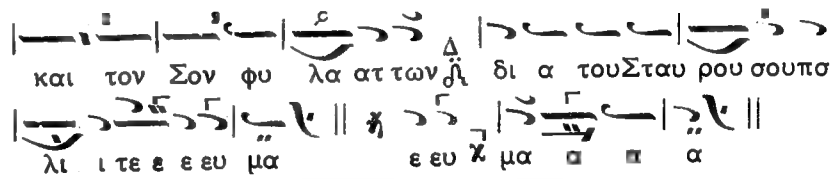 και τον Σον φυ λα ατ των δι α του Σταυ ρου σου πο
λι ι τε ε ε ευ μα ή ε ευ μα α α α